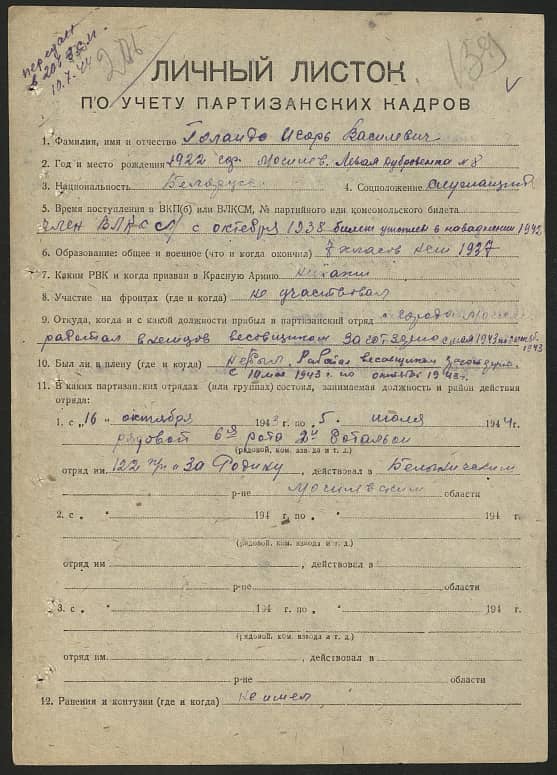 передан
в 201 ЗСП
10.7.44
139
ЛИЧНЫЙ ЛИСТОК
ПО УЧЕТУ ПАРТИЗАНСКИХ КАДРОВ
1. Фамилия, имя и отчество Голандо Игорь Василевич
2. Год и место рождения 1922 г. Могилев, Левая Дубровенка №8
3. Национальность Беларус 4. Соцположение Служащий
5. Время поступления в ВКП(б) или ВЛКСМ, № партийного или комсомольского билета
член ВЛКСМ с октября 1938 билет утоплен в 1942
6. Образование: общее и военное (что и когда окончил) 7 класов НСШ 1937
7. Каким РВК и когда призван в Красную Армию никаким
8. Участие на фронтах (где и когда) не участвовал
9. Откуда, когда и с какой должности прибыл в партизанский отряд с города
работал в немцов весовщиком с мая 1943 по
1943
10. Был ли в плену (где и когда) не был. Работал весовщиком
с 10 мая 1943 г. по октябрь 1943 г.
11. В каких партизанских отрядах (или группах) состоял, занимаемая должность и район действия
отряда:
1. с "16" октября 1943 г. по "5" июля 1944 г.
рядовой 6я рота 2й баталён
(рядовой, ком. взвода и т. д.)
отряд им. 122 За Родину, действовал в Белыническим
р-не Могилевским области
2. с " 194 г. по " 194 г.
(рядовой, ком. взвода и т. д.)
отряд им , действовал в
р-не области
3. с " 194 г. по " 194 г.
(рядовой, ком. взвода и т. д.)
отряд им. , действовал в
р-не области
12. Ранения и контузии (где и когда) не имел